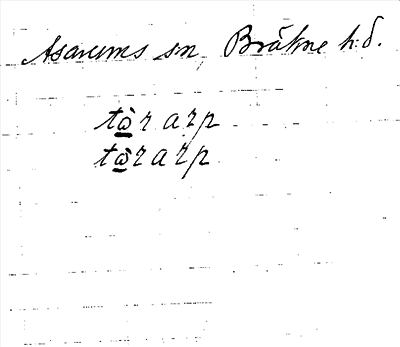 Asarums sn, Bräkne h:d.
tò̲rarp
tò̲rarp